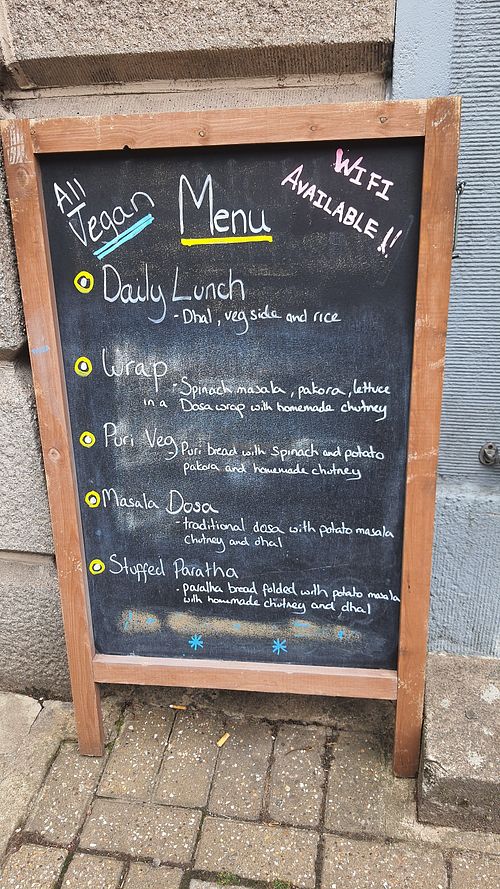 All
Vegan
Menu
WIFI
AVAILABLE!!
Daily Lunch
- Dhal, veg side and rice
Wrap
- Spinach masala, pakora, lettuce
in a Dosa wrap with homemade chutney
Puri Veg
Puri bread with spinach and potato
pakora and homemade chutney
Masala Dosa
- traditional dosa with potato masala
chutney and dhal
Stuffed Paratha
- paratha bread folded with potato masala
with homemade chutney and dhal